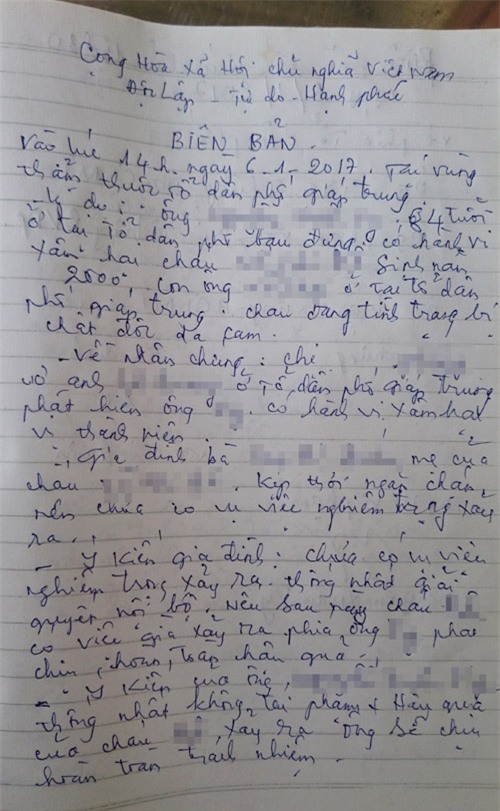 Cộng Hòa Xã Hội chủ nghĩa Việt Nam
Độc Lập - Tự do - Hạnh phúc
BIÊN BẢN.
Vào lúc 14.h. ngày 6-1-2017. Tại vùng
thẩm thuộc tổ dân phố giáp trung.
Lý do: ông 84 tuổi
ở tại Tổ dân phố Bàu đưng có hành vi
xâm hại cháu Sinh năm
2000, con ông ở tại tổ dân
phố giáp trung. cháu đang tình trạng bị
chất độc da cam.
- Về nhân chứng: chị
vợ anh ở Tổ dân phố giáp trung
phát hiện ông có hành vi xâm hại
vị thành niên.
- Gia đình bà mẹ của
cháu. Kịp thời ngăn chặn
nên chưa có vụ việc nghiêm trọng xảy
ra.
- Ý kiến gia đình: chưa có vụ việc
nghiêm trọng xảy ra. thống nhất giải
quyết nội bộ. nếu sau này cháu
có việc gì xảy ra phía ông phải
chịu hoàn toàn hậu quả.
- Ý Kiến của ông,
thống nhất không tái phạm + Hậu quả
của cháu xảy ra ông sẽ chịu
hoàn toàn trách nhiệm.